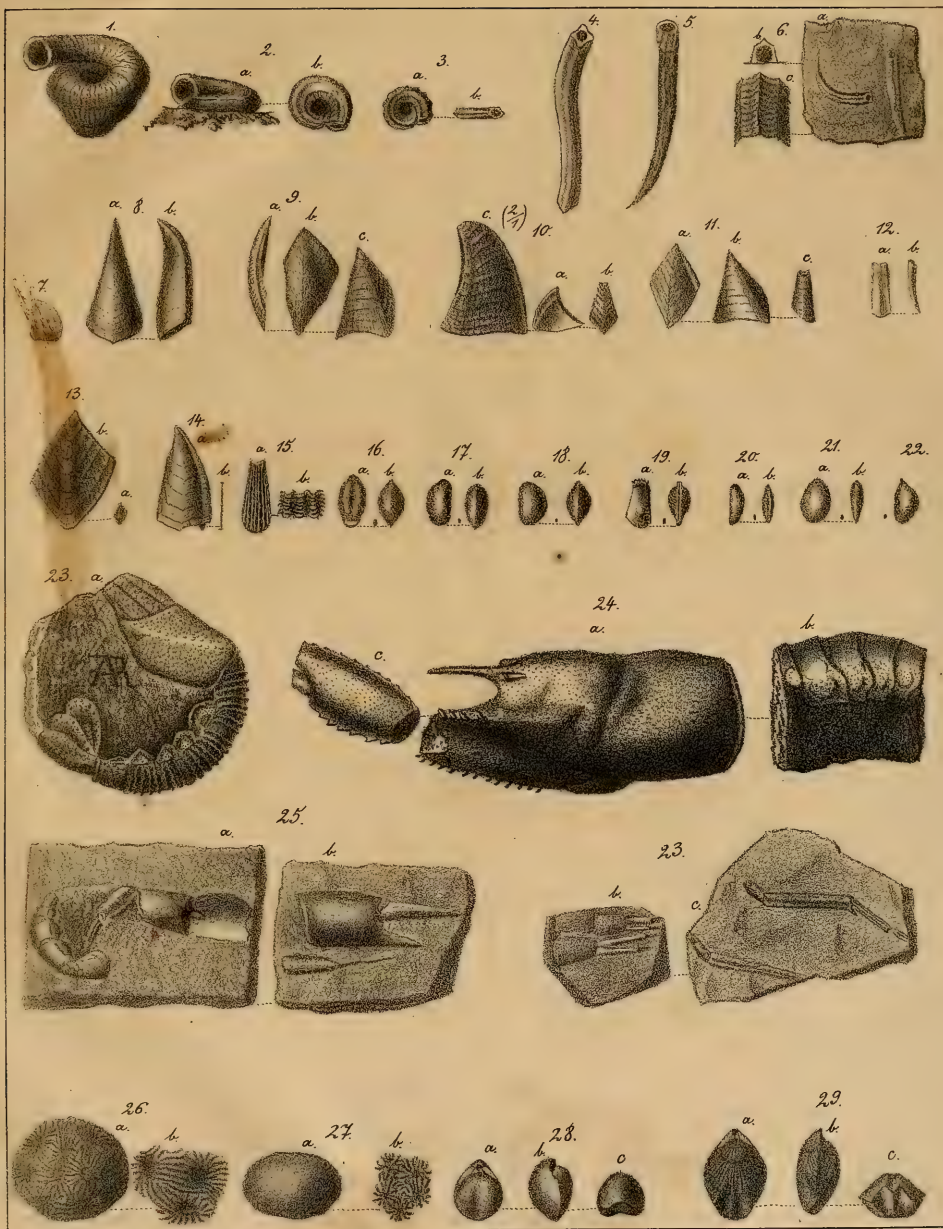 1. 2. a. b. 3. a. b. 4. 5. 6. b. a. c.
7. 8. a. b. 9. a. b. c. 10. c. (2/1) a. b. 11. a. b. c. 12. a. b.
13. b. a. 14. a. b. 15. a. b. 16. a. b. 17. a. b. 18. a. b. 19. a. b. 20. a. b. 21. a. b. 22.
23. a. AR 24. c. a. b.
25. a. b. 23. b. c.
26. a. b. 27. a. b. 28. a. b. c 29. a. b. c.